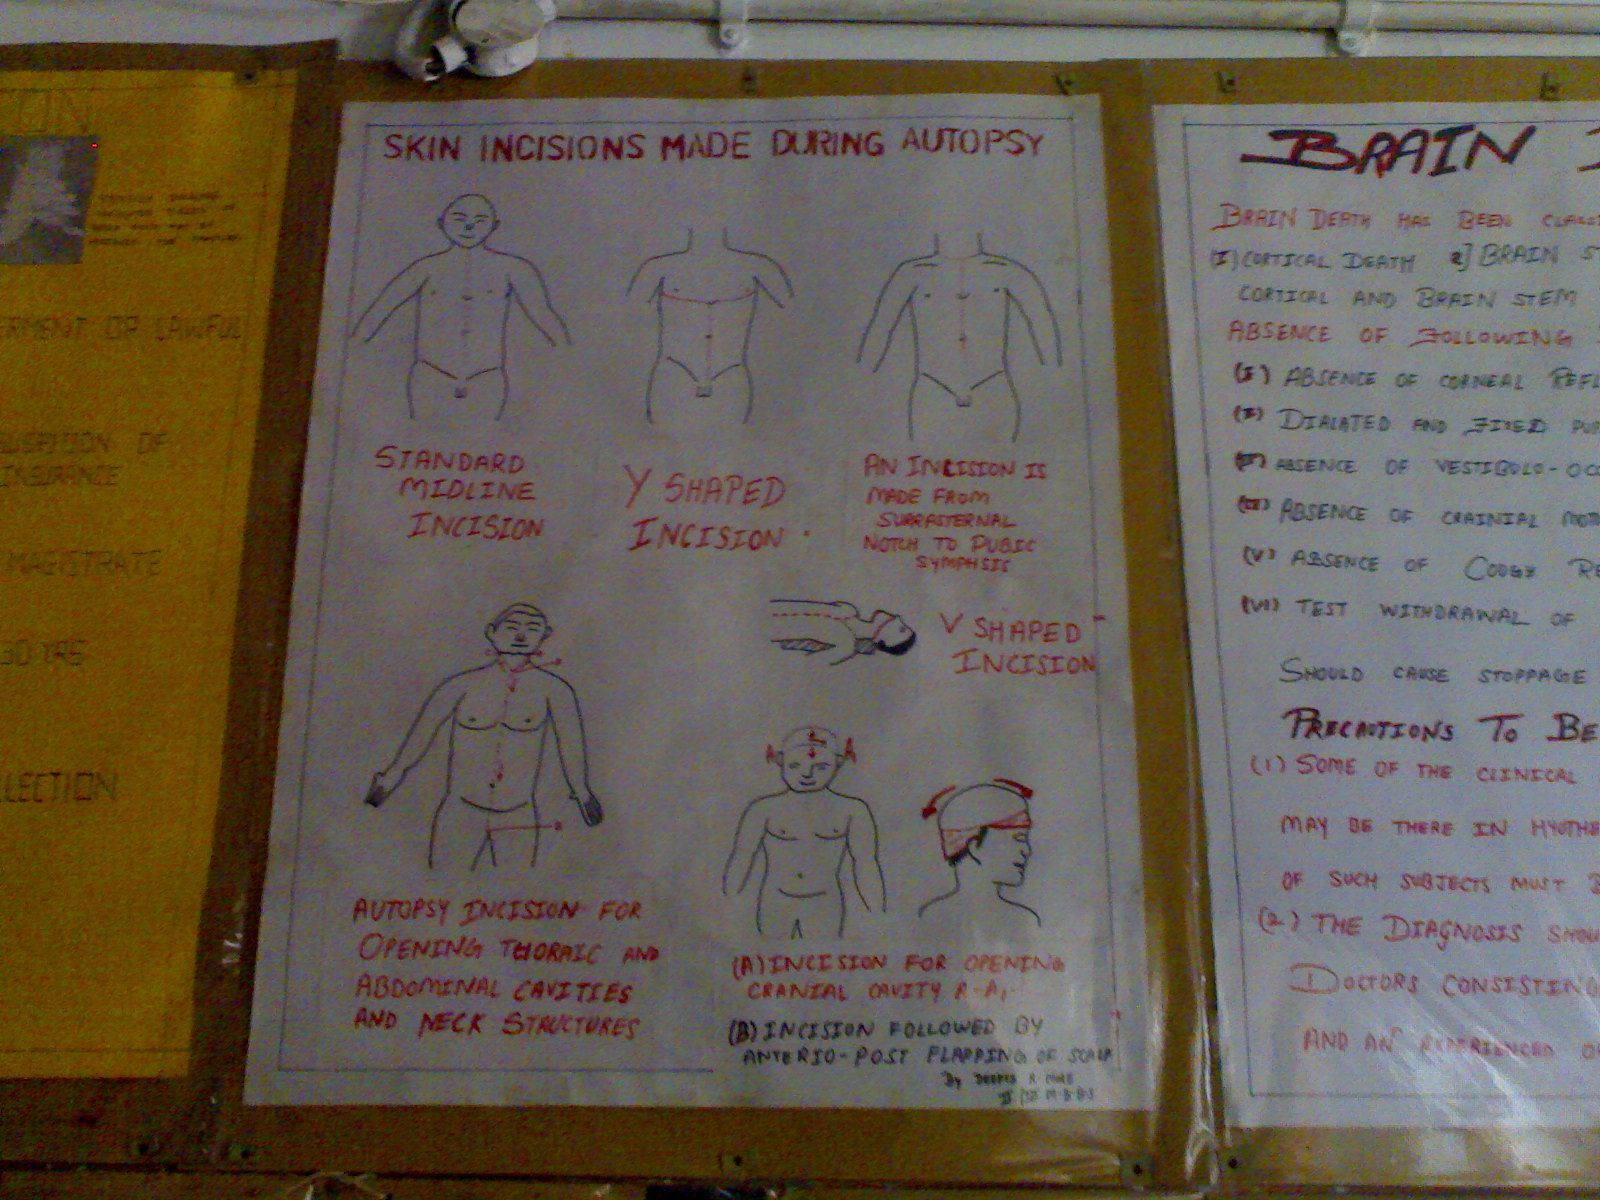 ON
ERMENT OR LAWFUL
OF
INSURANCE
MAGISTRATE
LLECTION
SKIN INCISIONS MADE DURING AUTOPSY
STANDARD
MIDLINE
INCISION
Y SHAPED
INCISION
AN INCISION IS
MADE FROM
SUPRASTERNAL
NOTCH TO PUBIC
SYMPHSIS
V SHAPED
INCISION
A A
AUTOPSY INCISION FOR
OPENING THORAIC AND
ABDOMINAL CAVITIES
AND NECK STRUCTURES
(A) INCISION FOR OPENING
CRANIAL CAVITY A-A,
(B) INCISION FOLLOWED BY
ANTERIO-POST FLAPPING OF SCALP
By
M.B.B.S
BRAIN
BRAIN DEATH HAS BEEN CLASSI
(I) CORTICAL DEATH 2] BRAIN ST
CORTICAL AND BRAIN STEM
ABSENCE OF FOLLOWING
(I) ABSENCE OF CORNEAL REFL
(II) DIALATED AND FIXED PUP
(III) ABSENCE OF VESTIBULO-OCC
(IV) ABSENCE OF CRAINIAL MOTO
(V) ABSENCE OF COUGH RE
(VI) TEST WITHDRAWAL OF
SHOULD CAUSE STOPPAGE
PRECAUTIONS TO BE
(1) SOME OF THE CLINICAL
MAY BE THERE IN HYOTHE
OF SUCH SUBJECTS MUST B
(2) THE DIAGNOSIS SHOU
DOCTORS CONSISTING
AND AN EXPERIENCED